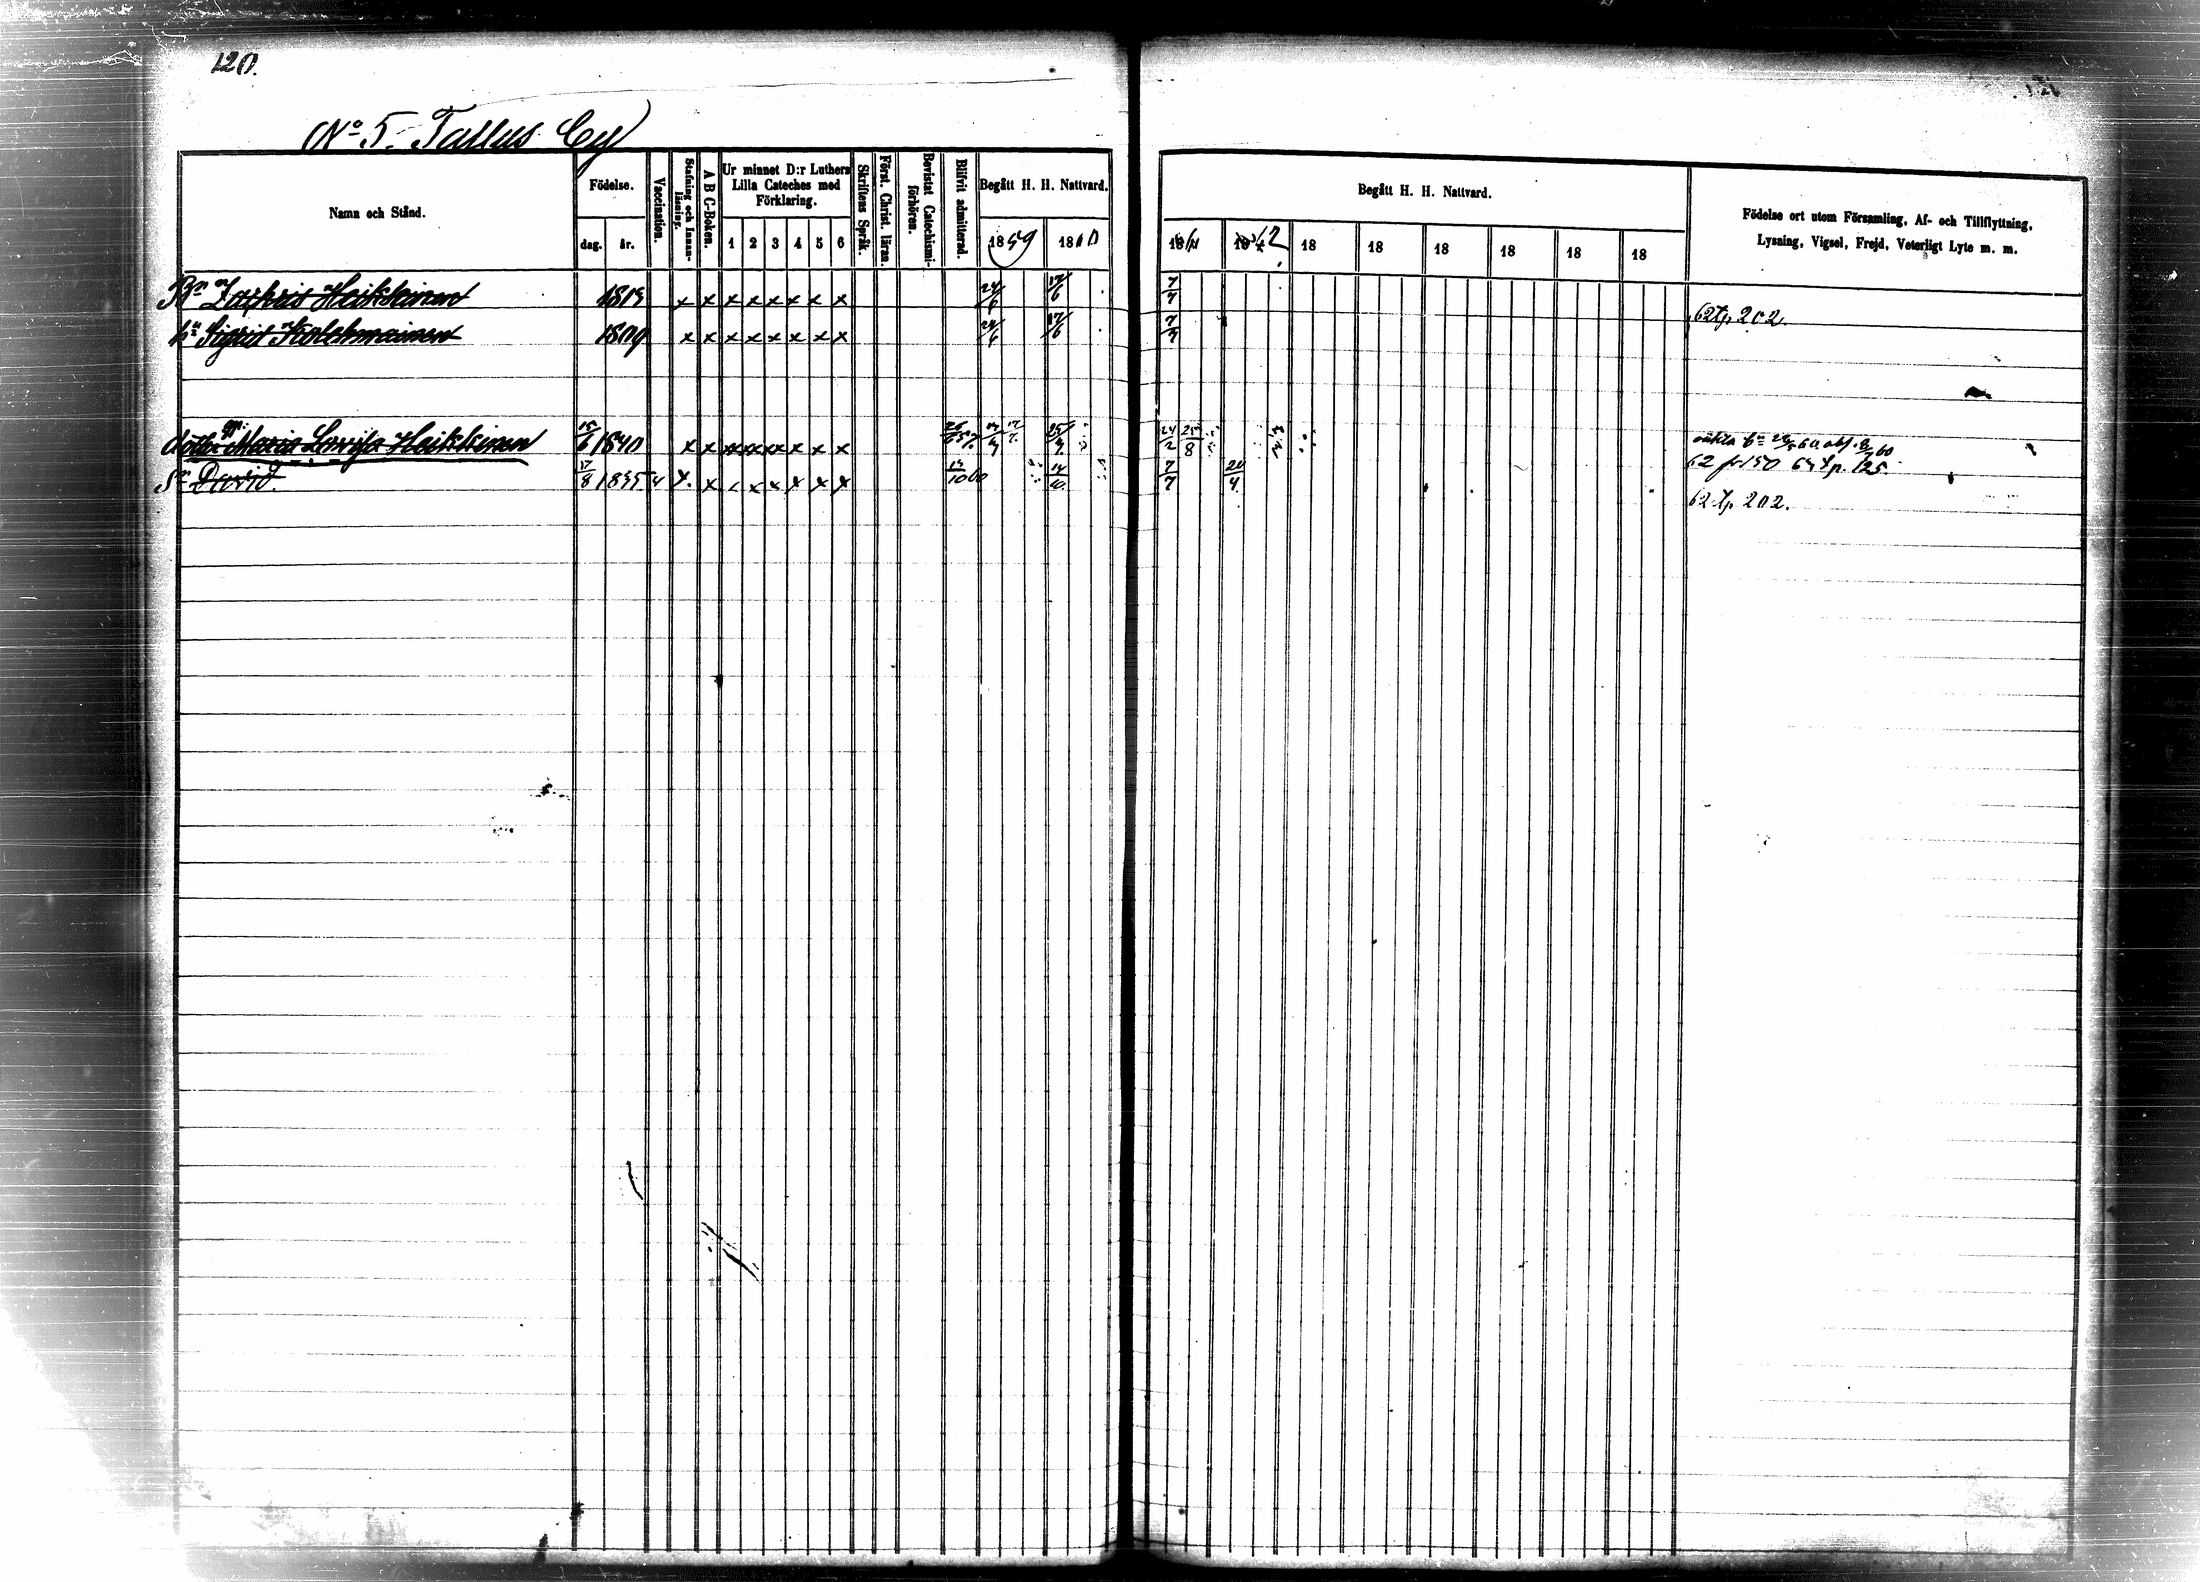 120.
No 5. Tallus By
Namn och Stånd.
Födelse.
dag. år.
Vaccination.
Stafning och Innanläsning.
A B C-Boken.
Ur minnet D:r Luthers Lilla Cateches med Förklaring.
1 2 3 4 5 6
Skriftens Språk.
Först. Christ. läran.
Bevistat Catechismiförhören.
Blifvit admitterad.
Begått H. H. Nattvard.
1859 1860
Begått H. H. Nattvard.
1861 1862 18 18 18 18 18 18
Födelse ort utom Församling, Af- och Tillflyttning,
Lysning, Vigsel, Frejd, Veterligt Lyte m. m.
Zachris Heikkinen 1813 x x x x x x x x 24/6 17/6 7/7 62 tp. 202.
hu Sigrid Kolehmainen 1809 x x x x x x x x 24/6 17/6 7/7
dotter Maria Lovisa Heikkinen 15/6 1840 x x x x x x x x 24/2 25/8
62 fr 150 64 tp. 125
Sn David. 17/8 1835 x x x x x x x x 14/10 60 14/10 7/7 20/4
62 tp. 202.